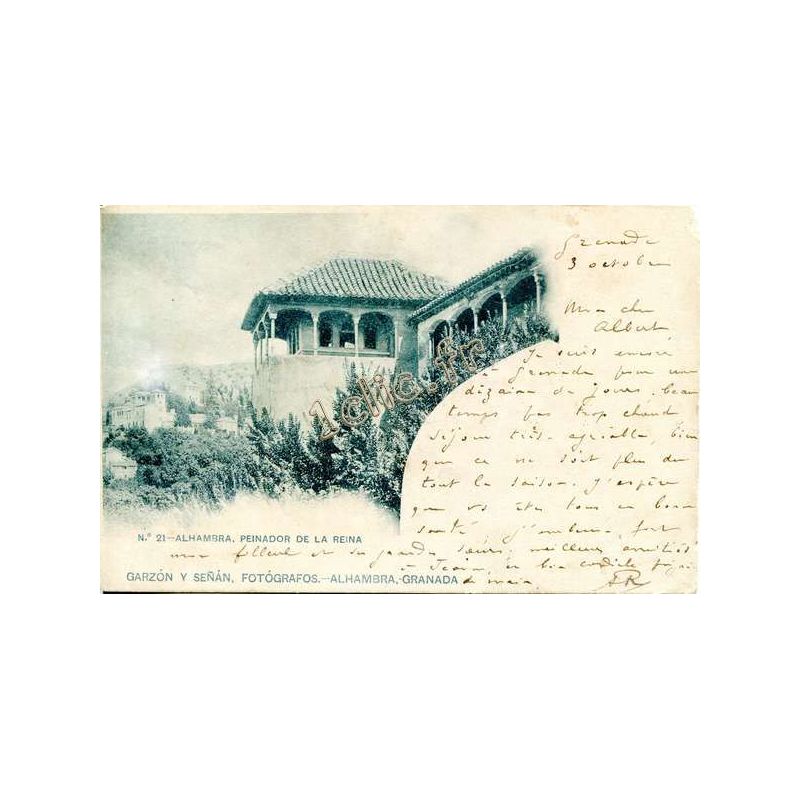 Grenade
3 octobre
Mon cher
Albert
Je suis encore
à Grenade pour une
dizaine de jours, beau
temps pas trop chaud
séjour très agréable, bien
que ce ne soit plus du
tout la saison. J'espère
que vs êtes tous en bonne
santé, j'embrasse fort
mon filleul et sa grande sœur, meilleures amitiés
à et bien cordiale poignée
de main AR
1clic.fr
N.º 21—ALHAMBRA, PEINADOR DE LA REINA
GARZÓN Y SEÑÁN, FOTÓGRAFOS.—ALHAMBRA,-GRANADA